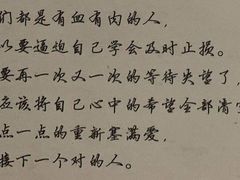 们都是有血有肉的人，
以要逼迫自己学会及时止损。
要再一次又一次的等待失望了，
应该将自己心中的希望全部清空
点一点的重新塞满爱，
接下一个对的人。